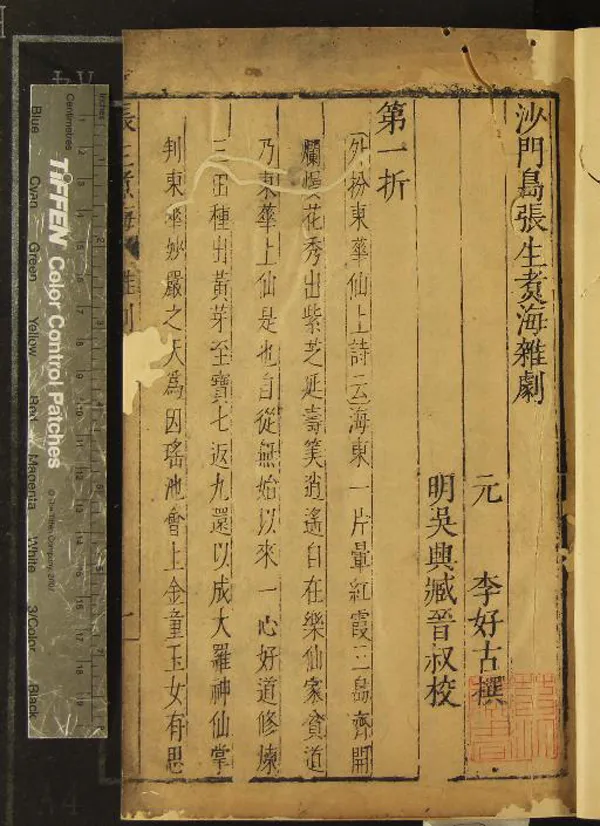 沙門島張生煑海雜劇
元 李好古撰
明吳興臧晉叔校
第一折
外扮東華仙上詩云海東一片暈紅霞三島齊開
爛熳花秀出紫芝延壽筭逍遙自在樂仙家貧道
乃東華上仙是也自從無始以來一心好道修煉
三田種出黃芽至寶七返九還以成大羅神仙掌
判東華妙嚴之天為因瑤池會上金童玉女有思
張生煑海 雜劇
一
Inches
Centimetres
TIFFEN Color Control Patches
© The Tiffen Company, 2007
Blue
Cyan
Green
Yellow
Red
Magenta
White
3/Color
Black
A4